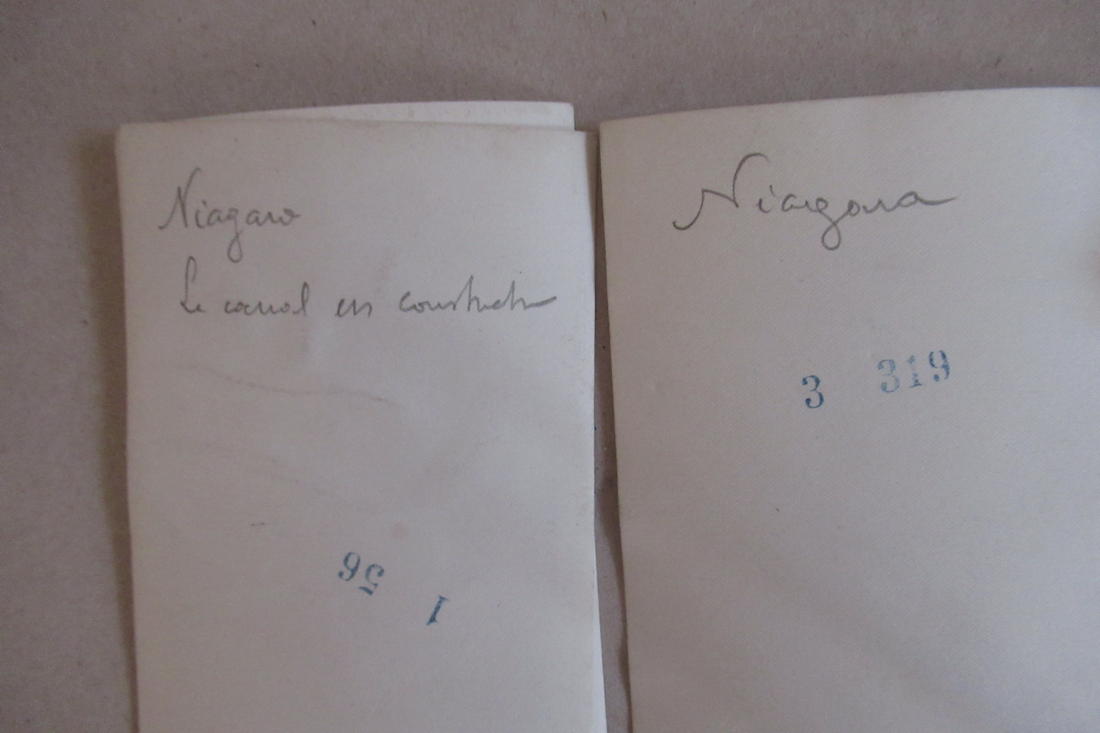 Niagara
Le canal en construction
1 56
Niagara
3 319